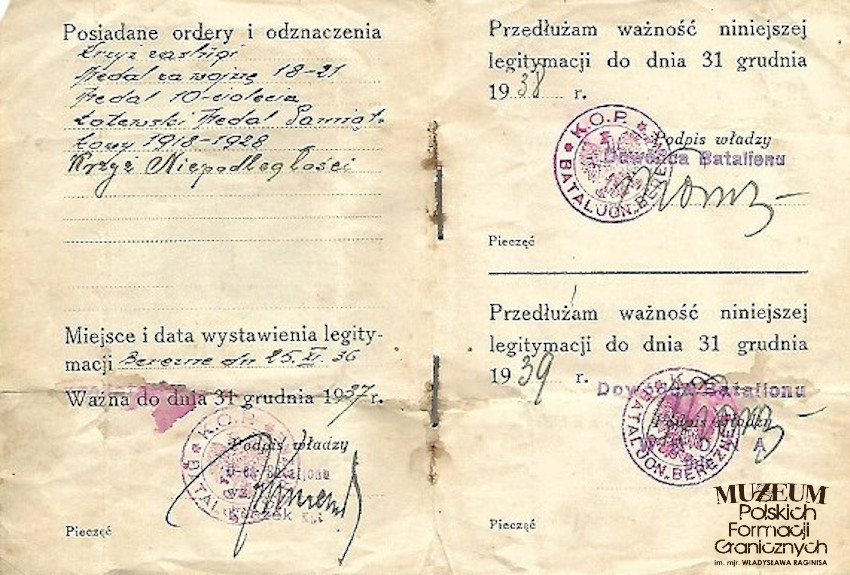 Posiadane ordery i odznaczenia
Krzyż zasługi
Medal za wojnę 18-21
Medal 10-ciolecia
Łotewski Medal Pamiąt-
kowy 1918-1928
Krzyż Niepodległości
Miejsce i data wystawienia legity-
macji Berezne dn. 25.XI.36
Ważna do dnia 31 grudnia 1937 r.
K.O.P.
Podpis władzy
Pieczęć
Przedłużam ważność niniejszej
legitymacji do dnia 31 grudnia
1938 r.
K.O.P.
BATALJON „BEREZNE
Podpis władzy
Dowódca Batalionu
Pieczęć
Przedłużam ważność niniejszej
legitymacji do dnia 31 grudnia
1939 r.
Dowódca Batalionu
K.O.P.
BATALJON „BEREZNE
Podpis władzy
Pieczęć
MUZEUM
Polskich
Formacji
Granicznych
im. mjr. WŁADYSŁAWA RAGINISA